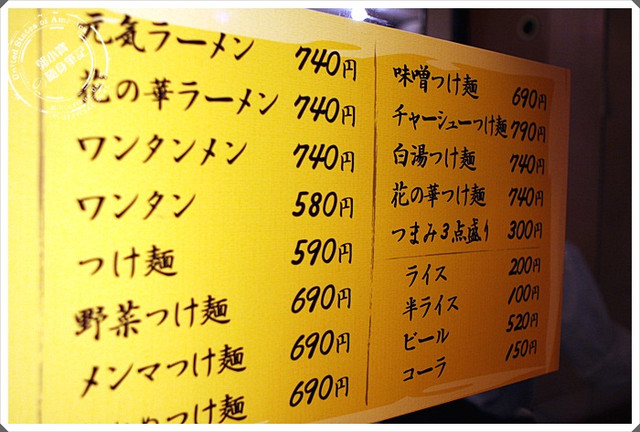 元気ラーメン 740円
花の華ラーメン 740円
ワンタンメン 740円
ワンタン 580円
つけ麺 590円
野菜つけ麺 690円
メンマつけ麺 690円
つけ麺 690円
味噌つけ麺 690円
チャーシューつけ麺 790円
白湯つけ麺 740円
花の華つけ麺 740円
つまみ3点盛り 300円
ライス 200円
半ライス 100円
ビール 520円
コーラ 150円